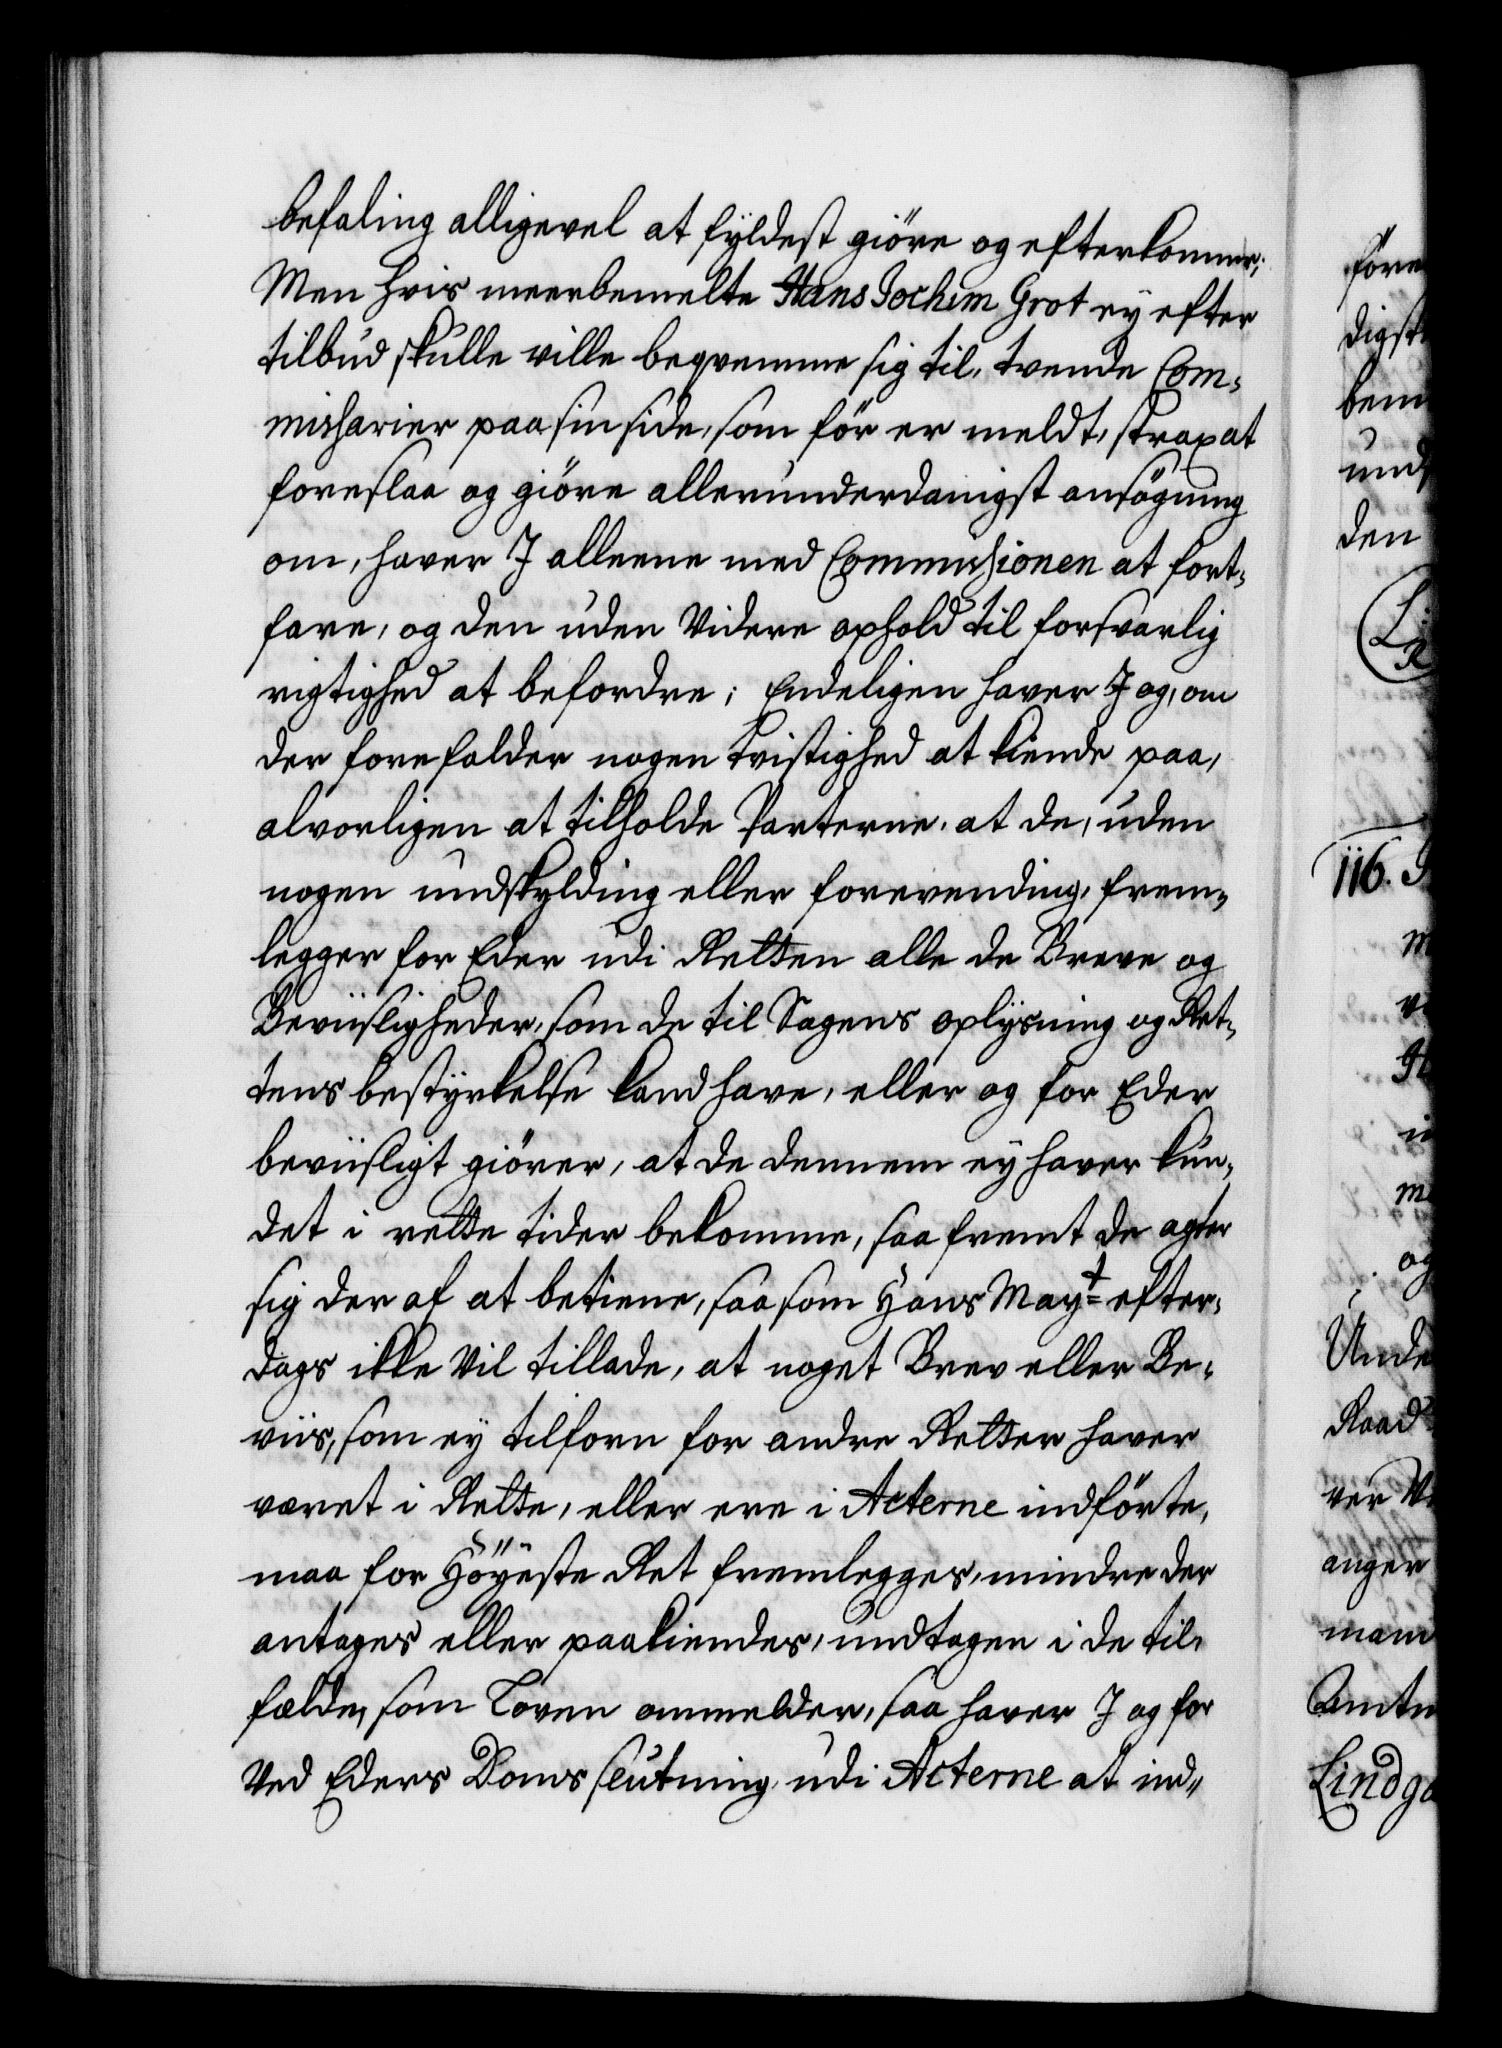 befaling alligevel at fyldest giöre og efterkomme;
Men hvis meerbemelte Hans Jochim Grot ey efter
tilbud skulle ville beqvemme sig til, tvende Com-
missarier paa sin side, som för er meldt, strax at
foreslaa og giöre allerunderdanigst ansögning
om, haver I alleene med Commissionen at fort-
fare, og den uden Videre ophold til forsvarlig
rigtighed at befordre; Endeligen haver I og, om
der forefalder nogen tvistighed at kiende paa,
alvorligen at tilholde Parterne, at de, uden
nogen undskylding eller forevending, frem-
legger for Eder udi Retten alle de Breve og
Beviisligheder, som de til Sagens oplysning og Ret-
tens bestyrkelse kand have, eller og for Eder
beviisligt giörer, at de dennem ey haver kun-
det i rette tider bekomme, saa fremt de agter
sig der af at betiene, saasom Hans Mayt efter-
dags ikke Vil tillade, at noget Brev eller Be-
viis, som ey tilforn for andre Retter haver
været i Rette, eller ere i Acterne indförte,
maa for Höyeste Ret fremlegges, mindre der
antages eller paakiendes, undtagen i de til-
fælde, som Loven ommelder, saa haver I og for
Ved Eders Doms slutning udi Acterne at ind-
före
digst
bem
und
den
116.
m
og
Unde
Raad
ver
anger
mam
Amtm
Lindga